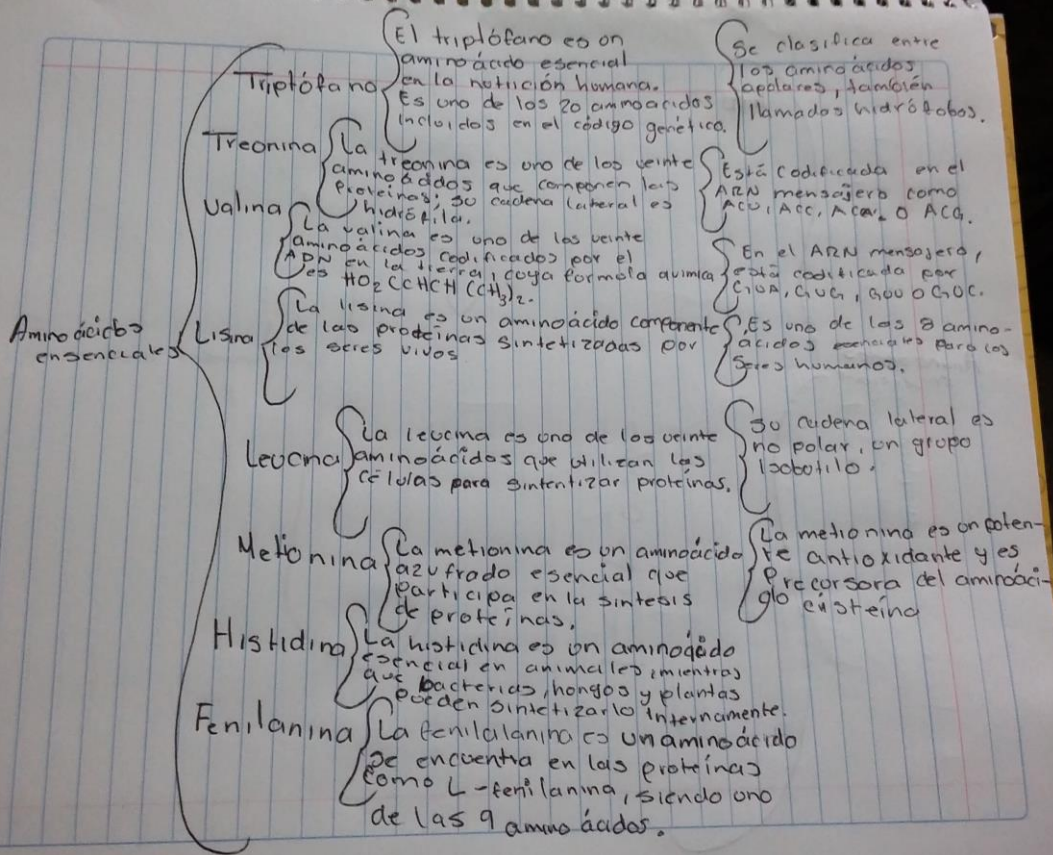 Aminoácidos
ensenciales
Triptófano
El triptófano es un
aminoácido esencial
en la nutrición humana.
Es uno de los 20 aminoacidos
incluidos en el código genético.
Se clasifica entre
los aminoácidos
apolares, también
llamados hidrófobos.
Treonina
La treonina es uno de los veinte
aminoácidos que componen las
proteínas; su cadena lateral es
hidrófila.
Está codificada en el
ARN mensajero como
ACU, ACC, ACA o ACG.
Valina
La valina es uno de los veinte
aminoácidos codificados por el
ADN en la tierra, cuya formula química
es HO2CCHCH(CH3)2.
En el ARN mensajero,
está codificada por
GUA, GUG, GUU o GUC.
Lisina
La lisina es un aminoácido componente
de las proteínas sintetizadas por
los seres vivos
Es uno de los 8 amino-
ácidos esenciales para los
seres humanos.
Leucina
La leucina es uno de los veinte
aminoácidos que utilizan las
células para sintentizar proteínas.
Su cadena lateral es
no polar, un grupo
isobutilo.
Metionina
La metionina es un aminoácido
azufrado esencial que
participa en la síntesis
de proteínas.
La metionina es un poten-
te antioxidante y es
precursora del aminoáci-
do cisteína
Histidina
La histidina es un aminoácido
esencial en animales, mientras
que bacterias, hongos y plantas
pueden sintetizarlo internamente.
Fenilanina
La fenilalanina es un aminoácido
se encuentra en las proteínas
como L-fenilanina, siendo uno
de las 9 aminoácidos.